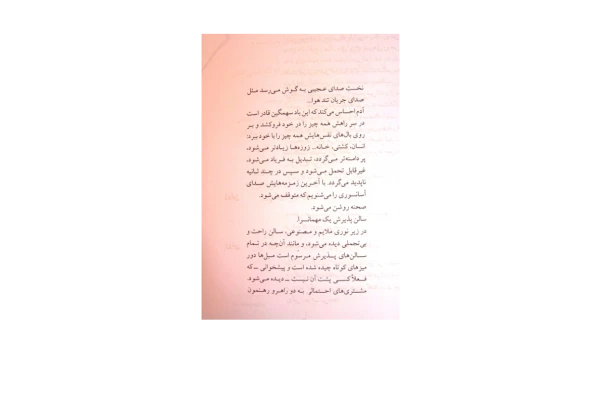 نخست صدای عجیبی به گوش می‌رسد مثل
صدای جریان تند هوا...
آدم احساس می‌کند که این باد سهمگین قادر است
در سر راهش همه چیز را در خود فروکشد و بر
روی بال‌های نفس‌هایش همه چیز را با خود ببرد:
انسان، کشتی، خانه... زوزه‌ها زیادتر می‌شود،
پردامنه‌تر می‌گردد، تبدیل به فریاد می‌شود،
غیرقابل تحمل می‌شود و سپس در چند ثانیه
ناپدید می‌گردد. با آخرین زمزمه‌هایش صدای
آسانسوری را می‌شنویم که متوقف می‌شود.
صحنه روشن می‌شود.
سالن پذیرش یک مهمانسرا.
در زیر نوری ملایم و مصنوعی، سالن راحت و
بی‌تجملی دیده می‌شود، و مانند آن‌چه در تمام
سالن‌های پذیرش مرسوم است مبل‌ها دور
میزهای کوتاه چیده شده است و پیشخوانی ــ که
فعلاً کسی پشت آن نیست ــ دیده می‌شود.
مشتری‌های احتمالی به دو راهرو رهنمون